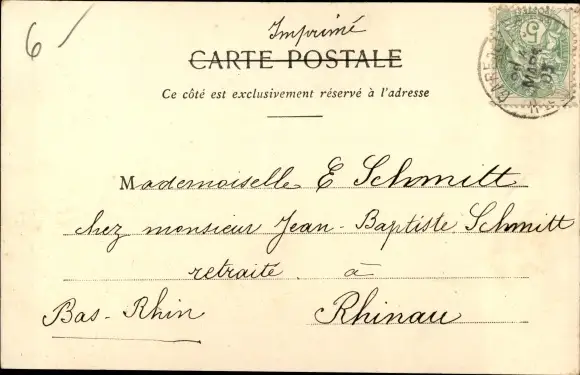 6
Imprimé
CARTE POSTALE
Ce côté est exclusivement réservé à l'adresse
Mademoiselle E Schmitt
chez monsieur Jean-Baptiste Schmitt
retraité à
Bas-Rhin Rhinau
5
03